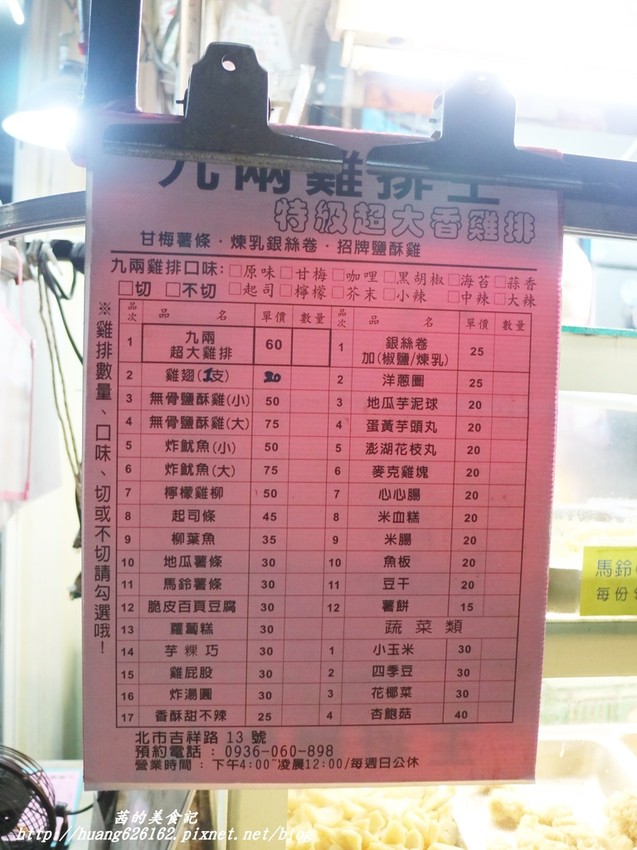 九兩雞排王
特級超大香雞排
甘梅薯條・煉乳銀絲卷・招牌鹽酥雞
九兩雞排口味：□原味□甘梅□咖哩□黑胡椒□海苔□蒜香
□切 □不切 □起司□檸檬□芥末□小辣 □中辣□大辣
※雞排數量、口味、切或不切請勾選哦！
品次 品名 單價 數量
1 九兩超大雞排 60
2 雞翅(1支) 20
3 無骨鹽酥雞(小) 50
4 無骨鹽酥雞(大) 75
5 炸魷魚(小) 50
6 炸魷魚(大) 75
7 檸檬雞柳 50
8 起司條 45
9 柳葉魚 35
10 地瓜薯條 30
11 馬鈴薯條 30
12 脆皮百頁豆腐 30
13 蘿蔔糕 30
14 芋粿巧 30
15 雞屁股 30
16 炸湯圓 30
17 香酥甜不辣 25
品次 品名 單價 數量
1 銀絲卷加(椒鹽/煉乳) 25
2 洋蔥圈 25
3 地瓜芋泥球 20
4 蛋黃芋頭丸 20
5 澎湖花枝丸 20
6 麥克雞塊 20
7 心心腸 20
8 米血糕 20
9 米腸 20
10 魚板 20
11 豆干 20
12 薯餅 15
蔬菜類
1 小玉米 30
2 四季豆 30
3 花椰菜 30
4 杏鮑菇 40
北市吉祥路 13 號
預約電話：0936-060-898
營業時間：下午4:00~凌晨12:00/每週日公休
馬鈴
每份
茜的美食記
http://huang626162.pixnet.net/blog